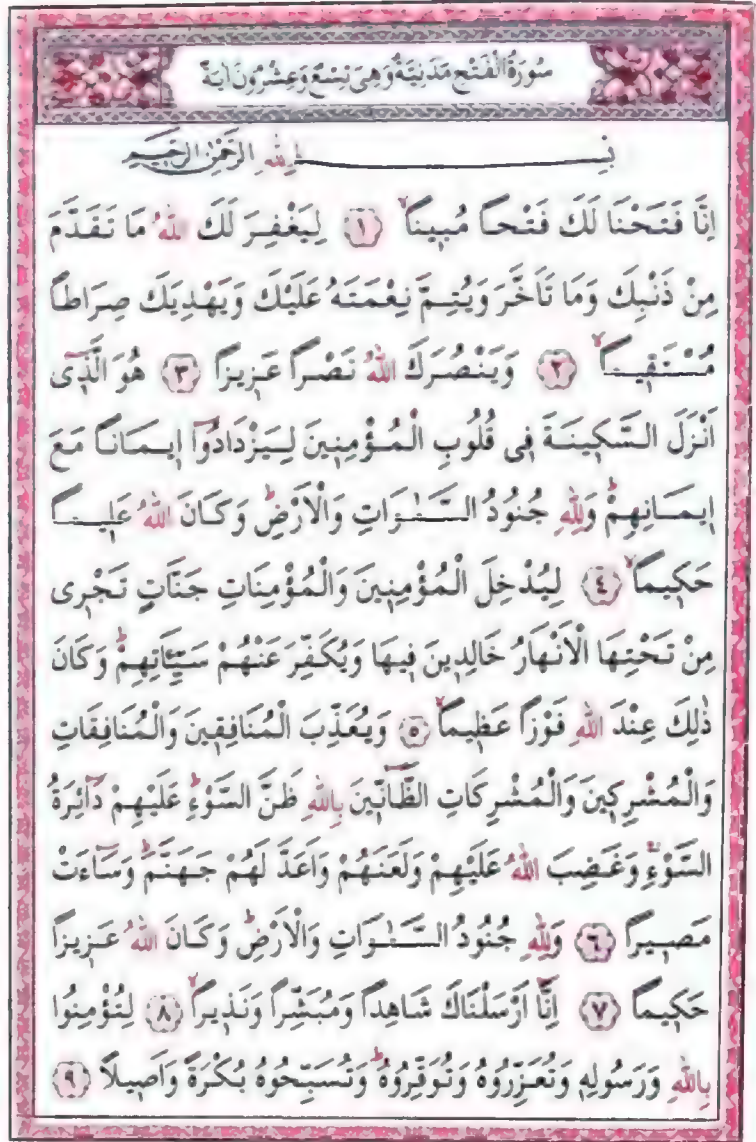 سُورَةُ الْفَتْحِ مَدَنِيَّةٌ وَهِيَ تِسْعٌ وَعِشْرُونَ اٰيَةً
بِسْمِ اللّٰهِ الرَّحْمٰنِ الرَّحِيمِ
اِنَّا فَتَحْنَا لَكَ فَتْحاً مُبِيناًۙ ﴿١﴾ لِيَغْفِرَ لَكَ اللّٰهُ مَا تَقَدَّمَ
مِنْ ذَنْبِكَ وَمَا تَاَخَّرَ وَيُتِمَّ نِعْمَتَهُ عَلَيْكَ وَيَهْدِيَكَ صِرَاطاً
مُسْتَقِيماًۙ ﴿٢﴾ وَيَنْصُرَكَ اللّٰهُ نَصْراً عَزِيزاً ﴿٣﴾ هُوَ الَّذٓى
اَنْزَلَ السَّكِينَةَ فِى قُلُوبِ الْمُؤْمِنِينَ لِيَزْدَادُٓوا اِيمَاناً مَعَ
اِيمَانِهِمْۜ وَلِلّٰهِ جُنُودُ السَّمٰوَاتِ وَالْاَرْضِۜ وَكَانَ اللّٰهُ عَلِيماً
حَكِيماًۙ ﴿٤﴾ لِيُدْخِلَ الْمُؤْمِنِينَ وَالْمُؤْمِنَاتِ جَنَّاتٍ تَجْرِى
مِنْ تَحْتِهَا الْاَنْهَارُ خَالِدِينَ فِيهَا وَيُكَفِّرَ عَنْهُمْ سَيِّئَاتِهِمْۜ وَكَانَ
ذٰلِكَ عِنْدَ اللّٰهِ فَوْزاً عَظِيماًۙ ﴿٥﴾ وَيُعَذِّبَ الْمُنَافِقِينَ وَالْمُنَافِقَاتِ
وَالْمُشْرِكِينَ وَالْمُشْرِكَاتِ الظَّٓانِّينَ بِاللّٰهِ ظَنَّ السَّوْءِۜ عَلَيْهِمْ دَٓائِرَةُ
السَّوْءِۚ وَغَضِبَ اللّٰهُ عَلَيْهِمْ وَلَعَنَهُمْ وَاَعَدَّ لَهُمْ جَهَنَّمَۜ وَسَٓاءَتْ
مَصِيراً ﴿٦﴾ وَلِلّٰهِ جُنُودُ السَّمٰوَاتِ وَالْاَرْضِۜ وَكَانَ اللّٰهُ عَزِيزاً
حَكِيماً ﴿٧﴾ اِنَّٓا اَرْسَلْنَاكَ شَاهِداً وَمُبَشِّراً وَنَذِيراًۙ ﴿٨﴾ لِتُؤْمِنُوا
بِاللّٰهِ وَرَسُولِهِ وَتُعَزِّرُوهُ وَتُوَقِّرُوهُۜ وَتُسَبِّحُوهُ بُكْرَةً وَاَصِيلاً ﴿٩﴾